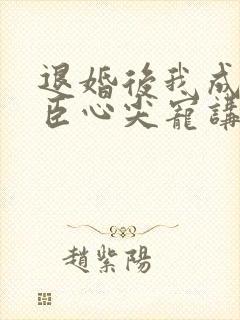 退婚後我成
臣心尖寵講
趙紫陽